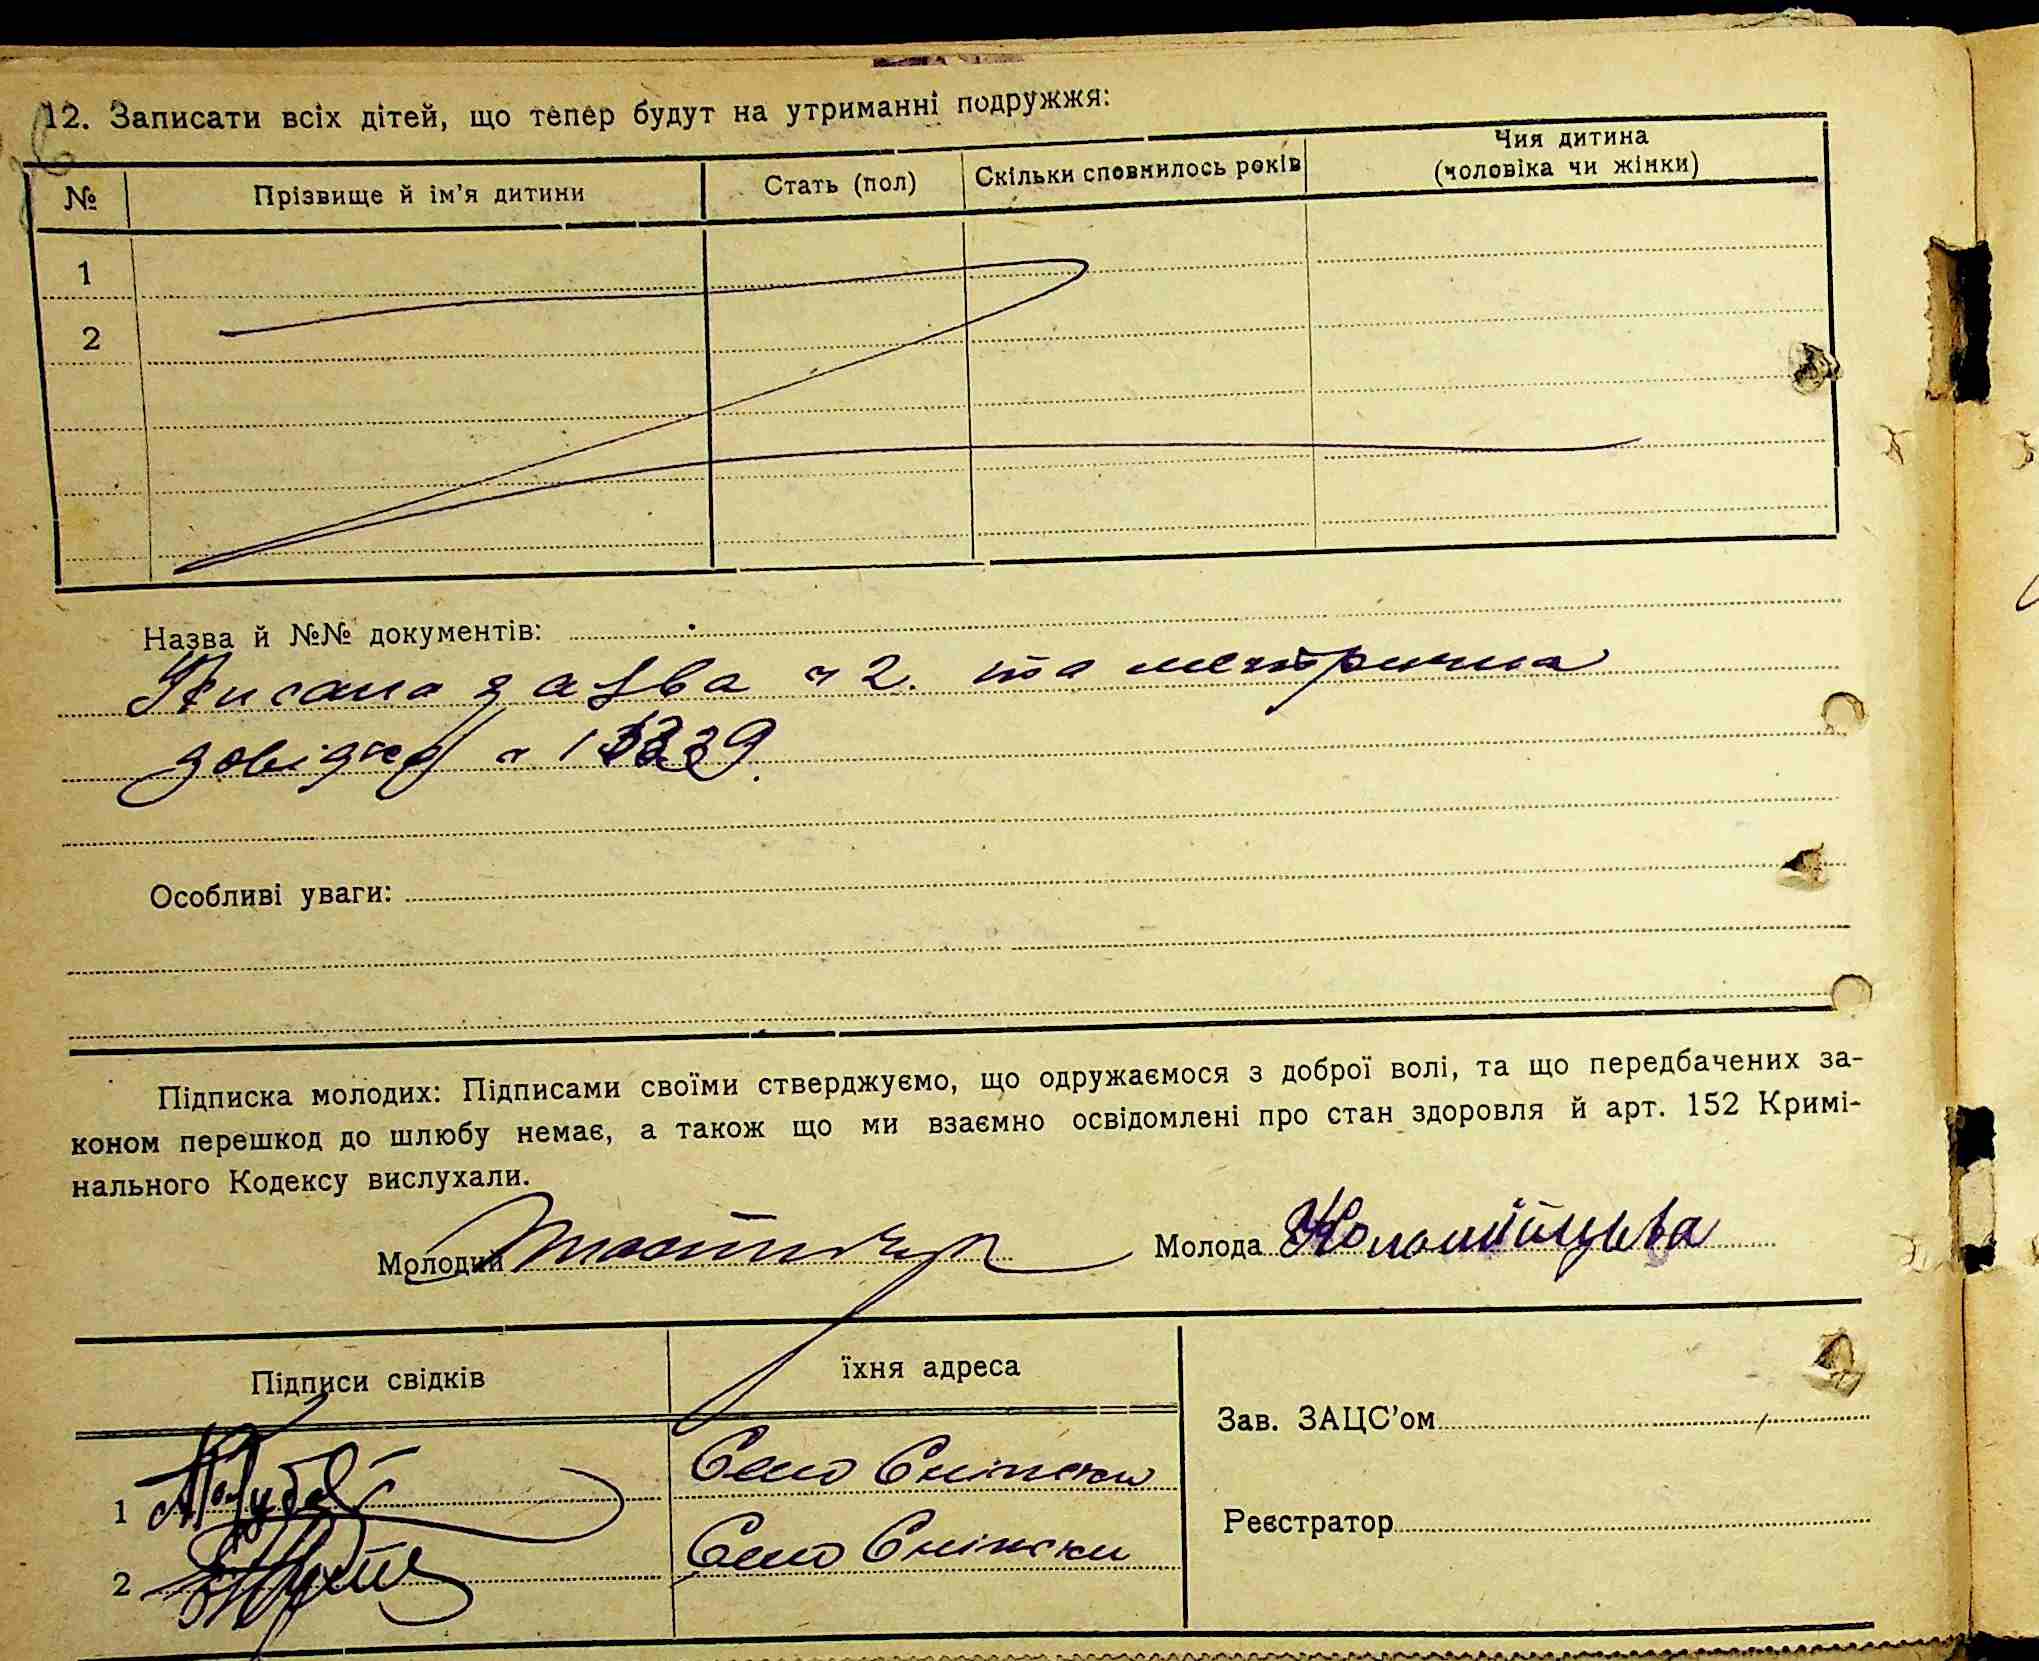 12. Записати всіх дітей, що тепер будут на утриманні подружжя:
№ Прізвище й ім'я дитини Стать (пол) Скільки сповнилось років Чия дитина
(чоловіка чи жінки)
1
2
Назва й №№ документів:
Писана заява ч 2. та метрична
довідка ч
Особливі уваги:
Підписка молодих: Підписами своїми стверджуємо, що одружаємося з доброї волі, та що передбачених за-
коном перешкод до шлюбу немає, а також що ми взаємно освідомлені про стан здоровля й арт. 152 Кримі-
нального Кодексу вислухали.
Молодий Молода Коломійцева
Підписи свідків їхня адреса
Зав. ЗАЦС'ом
1 Село
Реєстратор
2 Село